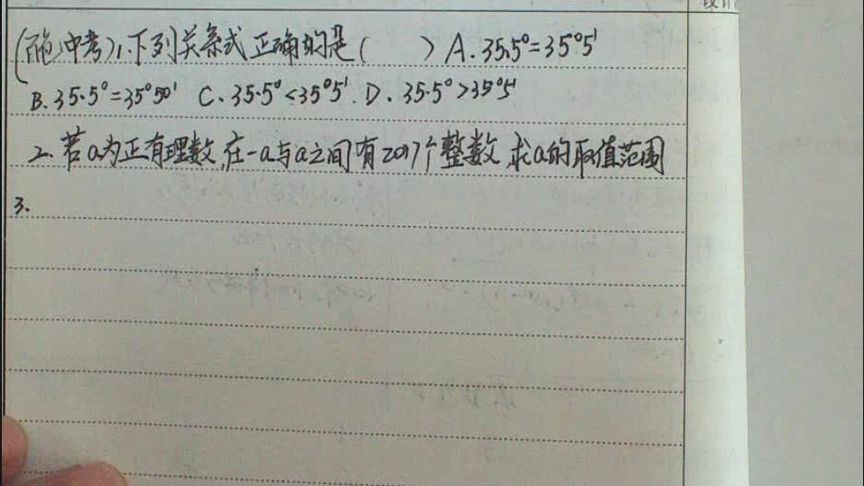 (恩施中考)1.下列关系式正确的是( ) A.35.5°=35°5′
B.35.5°=35°50′ C.35.5°<35°5′. D.35.5°>35°5′
2.若a为正有理数,在-a与a之间有2017个整数,求a的取值范围
3.